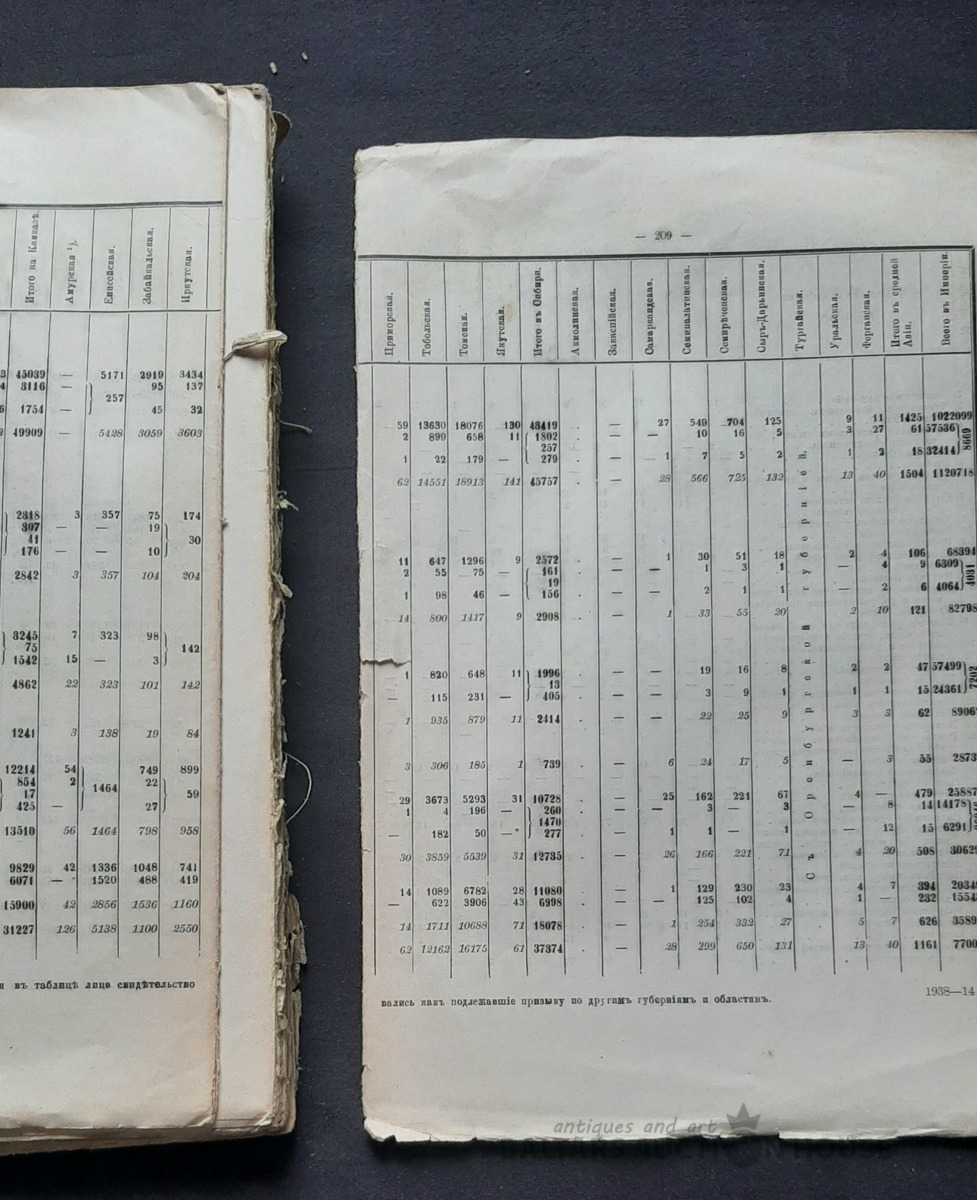 Итого на Кавказѣ. Амурская ¹). Енисейская. Забайкальская. Иркутская.
3 45039 — 5171 2919 3434
4 3116 — 95 137
257
6 1754 — 45 32
49909 — 5428 3059 3603
2318 3 357 75 174
307 — — 19
41 30
176 — — 10
2842 3 357 104 204
3245 7 323 98
75 142
1542 15 — 3
4862 22 323 101 142
1241 3 138 19 84
12214 54 749 899
854 2 22
17 1464 59
425 — 27
13510 56 1464 798 958
9829 42 1336 1048 741
6071 — 1520 488 419
15900 42 2856 1536 1160
31227 126 5138 1100 2550
въ таблицѣ лице свидѣтельство
— 209 —
Приморская. Тобольская. Томская. Якутская. Итого въ Сибири. Акмолинская. Закаспійская. Самаркандская. Семипалатинская. Семирѣченская. Сыръ-Дарьинская. Тургайская. Уральская. Ферганская. Итого въ средней Азіи. Всего въ Имперіи.
59 13630 18076 130 43419 . — 27 549 704 125 9 11 1425 1022099
2 899 658 11 1802 . — — 10 16 5 3 27 61 57536
257 8669
1 22 179 — 279 . — 1 7 5 2 1 2 18 32414
62 14551 18913 141 45757 . — 28 566 725 132 13 40 1504 1120718
11 647 1296 9 2572 . — 1 30 51 18 2 4 106 68394
2 55 75 — 161 . — — 1 3 1 — 4 9 6309
19 4031
1 98 46 — 156 . — 2 1 1 — 2 6 4064
14 800 1417 9 2908 . — 1 33 55 20 2 10 121 82798
1 820 648 11 1996 . — — 19 16 8 2 2 47 57499
13 7202
— 115 231 — 405 . — — 3 9 1 1 1 15 24361
1 935 879 11 2414 . — — 22 25 9 3 3 62 8906
3 306 185 1 739 . — 6 24 17 5 — 3 55 2873
29 3673 5293 31 10728 . — 25 162 221 67 4 — 479 25887
1 4 196 — 260 . — 3 — 3 8 14 14178
1470
— 182 50 — 277 . — 1 1 — 1 — 12 15 6291
30 3859 5539 31 12735 . — 26 166 221 71 4 20 508 3062
14 1089 6782 28 11080 . — 1 129 230 23 4 7 394 2034
— 622 3906 43 6998 . — — 125 102 4 1 — 232 1554
14 1711 10688 71 18078 . — 1 254 332 27 5 7 626 3589
62 12162 16175 61 37374 . — 28 299 650 131 13 40 1161 7700
Съ Оренбургской губерніей.
вались какъ подлежавшіе призыву по другимъ губерніямъ и областямъ.
1938—14
antiques and art
BALTARS AUCTION HOUSE